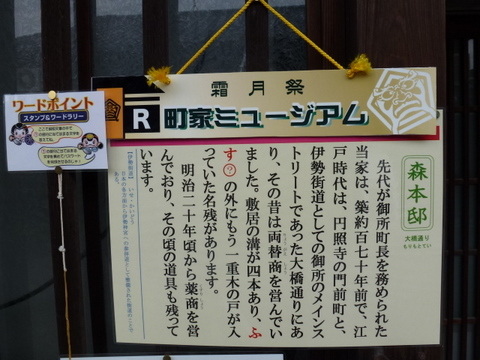 霜月祭
R 町家ミュージアム
ワードポイント
スタンプ&ワードラリー
森本邸
大橋通り
もりもとてい
先代が御所町長を務められた
当家は、築約百七十年前で、江
戸時代は、円照寺の門前町と、
伊勢街道としての御所のメインス
トリートであった大橋通りにあ
り、その昔は両替商を営んでい
ました。敷居の溝が四本あり、ふ
す?の外にもう一重木の戸が入
っていた名残があります。
明治二十年頃から薬商を営
んでおり、その頃の道具も残って
います。